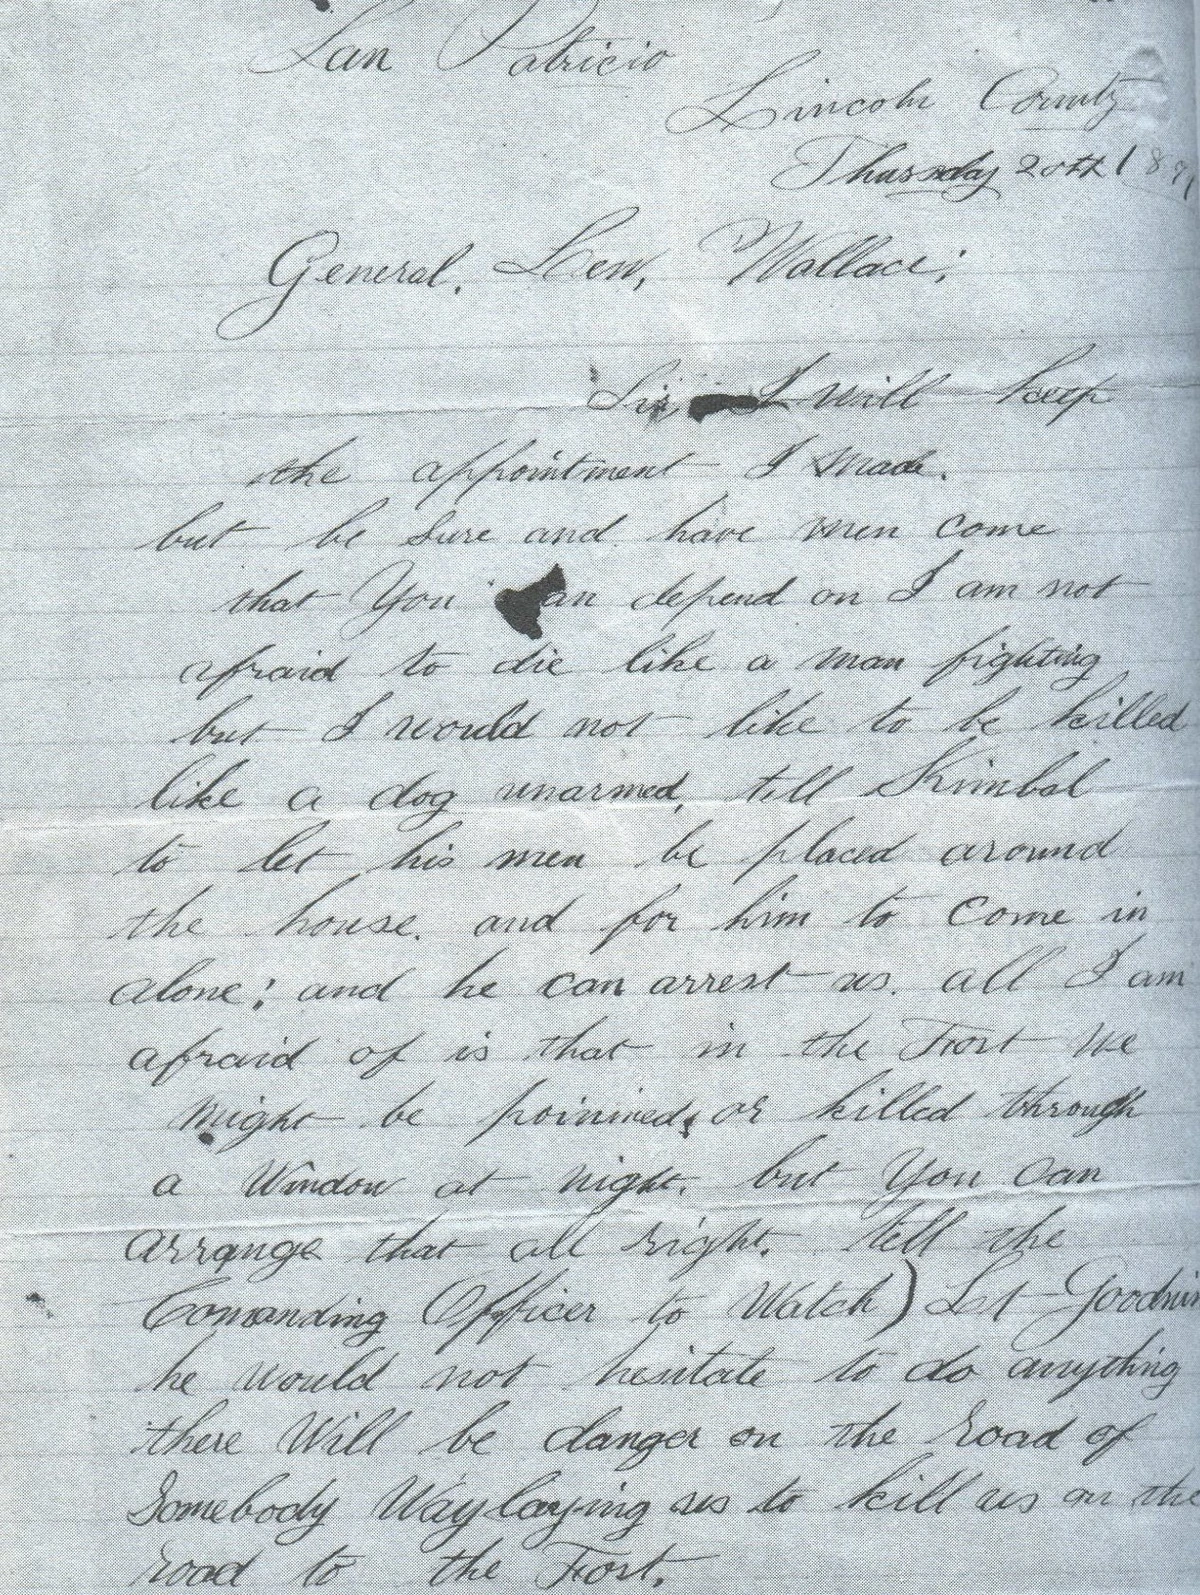 San Patricio
Lincoln County
Thursday 20th 1879
General. Lew, Wallace;
Sir I will keep
the appointment I made.
but be Sure and have men come
that You can depend on I am not
afraid to die like a man fighting
but I would not like to be killed
like a dog unarmed, tell Kimbal
to let his men be placed around
the house. and for him to come in
alone; and he can arrest us. all I am
afraid of is that in the Fort we
might be poinined, or killed through
a Window at night. but You can
arrange that all right. tell the
Comanding Officer to Watch) Let Goodwin
he would not hesitate to do anything
there Will be danger on the road of
Somebody Waylaying us to kill us on the
road to the Fort.